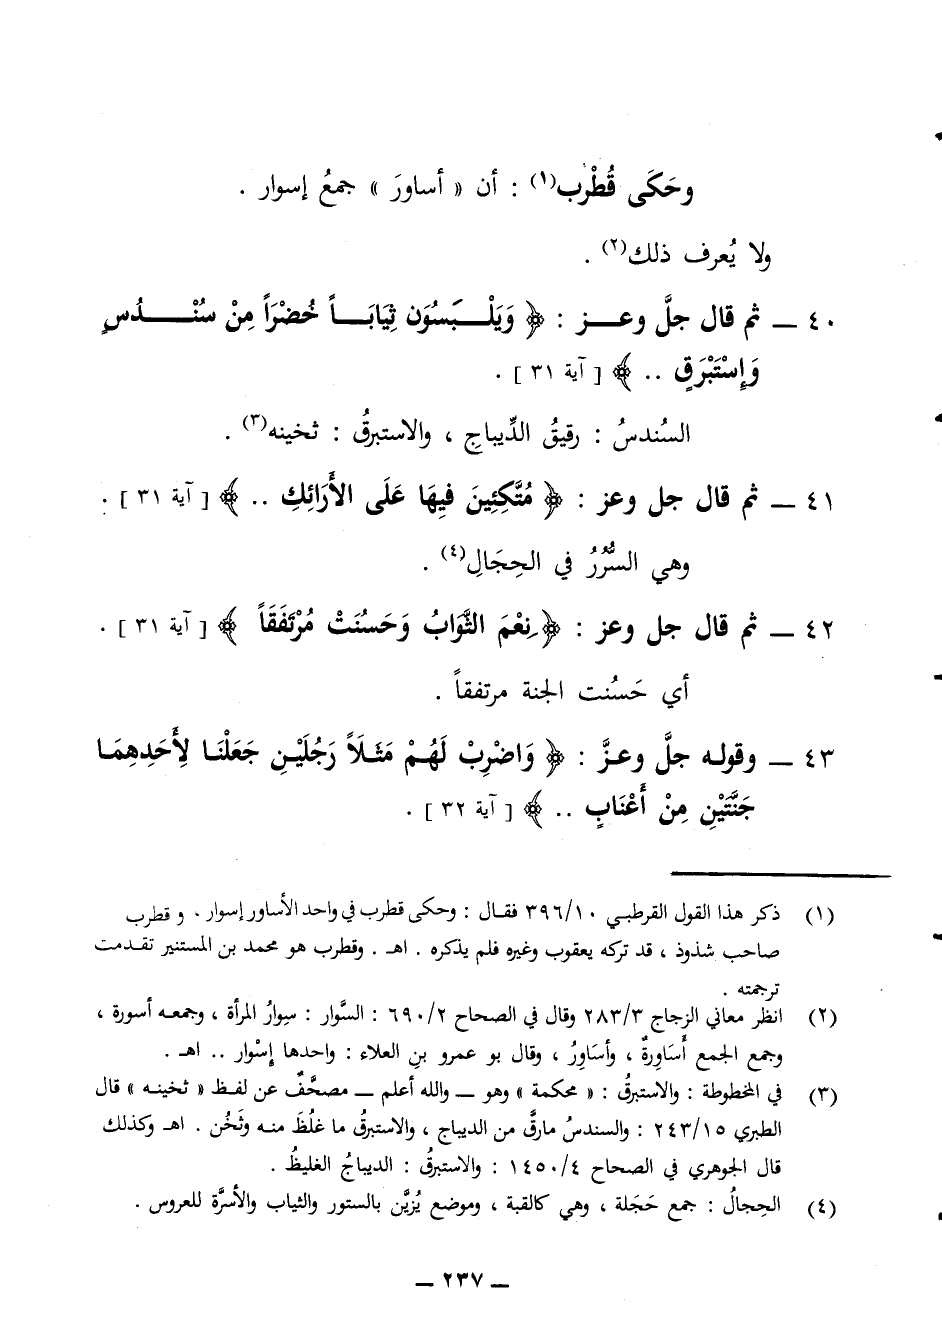 وحَكَى قُطْرب(١) : أن « أساورَ » جمعُ إسوار .
ولا يُعرف ذلك(٢) .
٤٠ ــ ثم قال جلَّ وعـــز : ﴿ وَيَلْبَسُوَن ثِيَابَـــاً خُضْرَاً مِنْ سُنْــــدُسٍ
وَإِسْتَبْرَقٍ .. ﴾ [ آية ٣١ ] .
السُندسُ : رقيقُ الدِّيباجِ ، والاستبرقُ : ثخينه(٣) .
٤١ ــ ثم قال جل وعز : ﴿ مُتَّكِئِينَ فِيهَا عَلَى الأَرَائِكِ .. ﴾ [ آية ٣١ ] .
وهي السُّرُرُ في الحِجَالِ(٤) .
٤٢ ــ ثم قال جل وعز : ﴿ نِعْمَ الثَّوَابُ وَحَسُنَتْ مُرْتَفَقَاً ﴾ [ آية ٣١ ] .
أي حَسُنت الجنة مرتفقاً .
٤٣ ــ وقوله جلَّ وعزَّ : ﴿ وَاضْرِبْ لَهُمْ مَثَلَاً رَجُلَيْنِ جَعَلْنَا لِأَحَدِهِمَا
جَنَّتَيْنِ مِنْ أَعْنَابٍ .. ﴾ [ آية ٣٢ ] .
(١) ذكر هذا القول القرطبي ٣٩٦/١٠ فقال : وحكى قطرب في واحد الأساور إسوار . و قطرب
صاحب شذوذ ، قد تركه يعقوب وغيره فلم يذكره . اهـ . وقطرب هو محمد بن المستنير تقدمت
ترجمته .
(٢) انظر معاني الزجاج ٢٨٣/٣ وقال في الصحاح ٦٩٠/٢ : السَّوار : سِوارُ المرأة ، وجمعه أسورة ،
وجمع الجمع أَسَاورةٌ ، وأسَاوِرُ ، وقال بو عمرو بنِ العلاء : واحدها إِسْوار .. اهـ .
(٣) في المخطوطة : والاستبرقُ : « محكمة » وهو ــ والله أعلم ــ مصحَّفٌ عن لفظ « ثخينه » قال
الطبري ٢٤٣/١٥ : والسندسُ مارقَّ من الديباج ، والاستبرقُ ما غلُظَ منه وثَخُن . اهـ وكذلك
قال الجوهري في الصحاح ١٤٥٠/٤ : والاستبرقُ : الديباجُ الغليظُ .
(٤) الحِجالُ : جمع حَجَلة ، وهي كالقبة ، وموضع يُزيَّن بالستور والثياب والأسرَّة للعروس .
ــ ٢٣٧ ــ